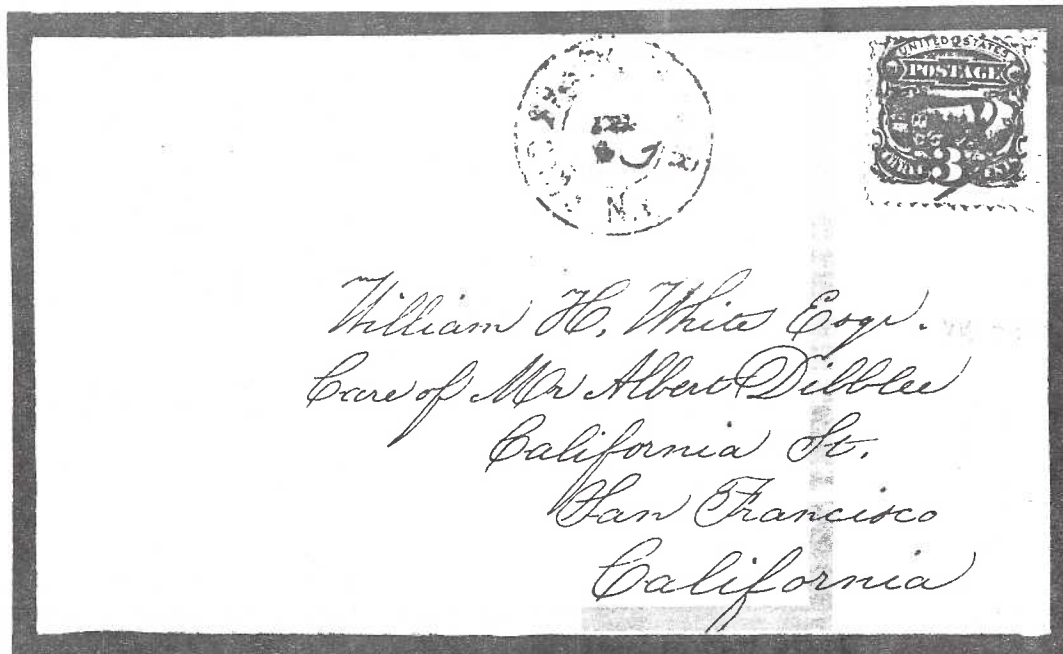 UNITED STATES
POSTAGE
3
N.J.
William H. White Esqr.
Care of Mr Albert Dibblee
California St.
San Francisco
California